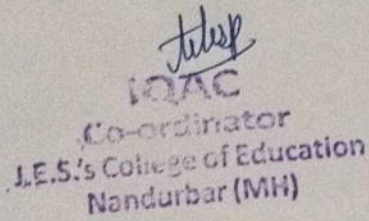 IQAC
Co-ordinator
J.E.S.'s College of Education
Nandurbar (MH)